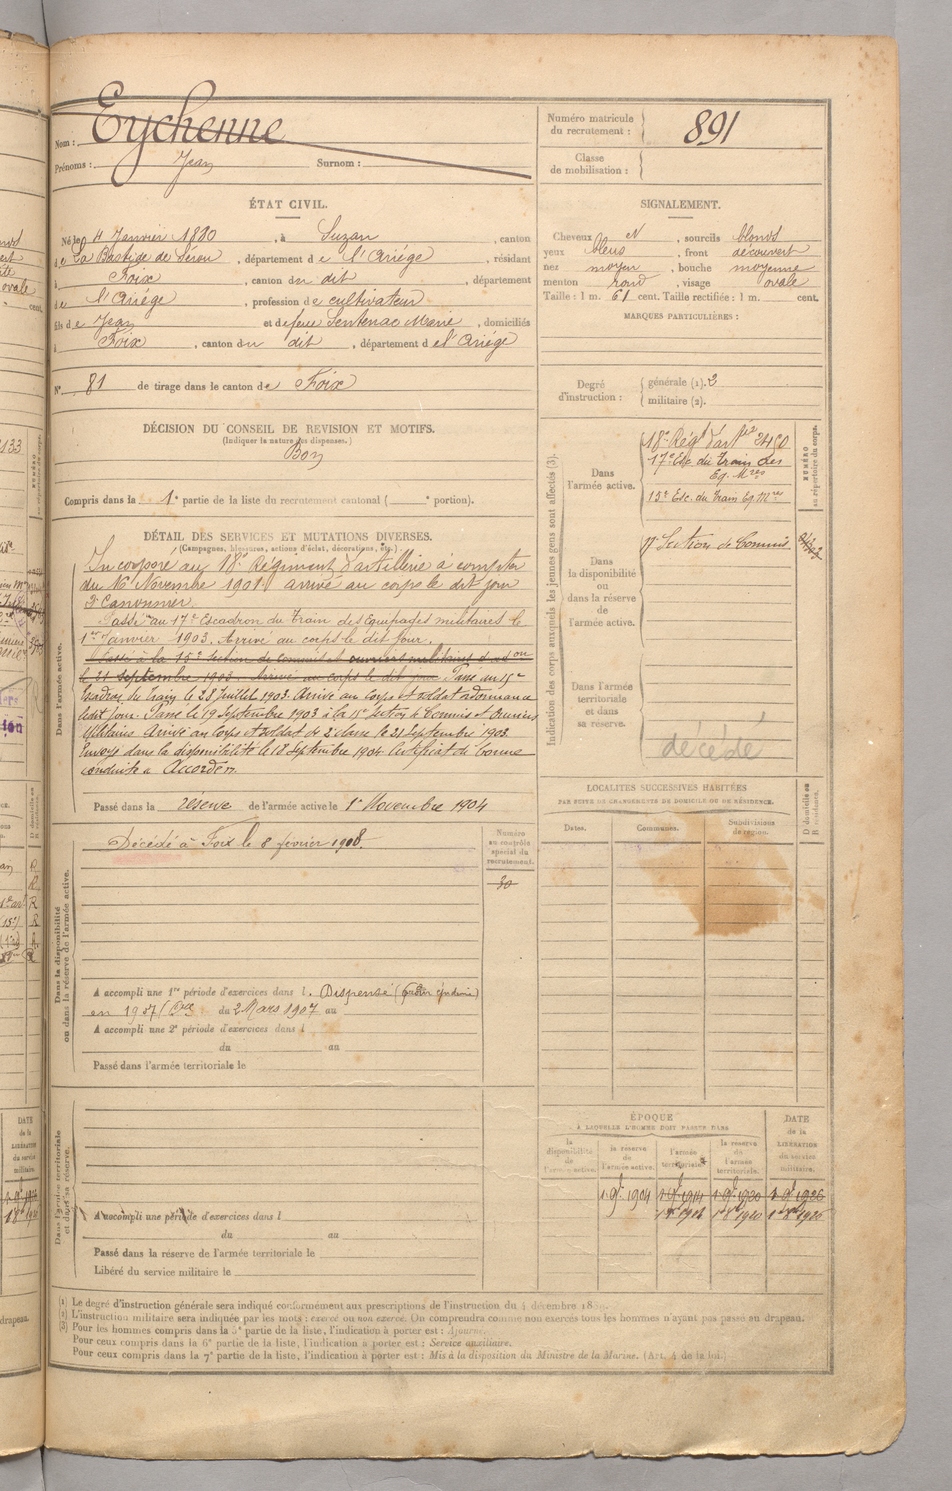 Nom : Eychenne
Prénoms : Jean Surnom :
Numéro matricule du recrutement : 891
Classe de mobilisation :
ÉTAT CIVIL.
Né le 4 Janvier 1880, à Suzan, canton
de La Bastide de Sérou, département de l'Ariége, résidant
à Foix, canton du dit, département
de l'Ariége, profession de cultivateur
fils de Jean et de feue Sentenac Marie, domiciliés
à Foix, canton du dit, département de l'Ariége
N° 81 de tirage dans le canton de Foix
SIGNALEMENT.
Cheveux et, sourcils blonds
yeux bleus, front découvert
nez moyen, bouche moyenne
menton rond, visage ovale
Taille : 1 m. 61 cent. Taille rectifiée : 1 m. cent.
MARQUES PARTICULIÈRES :
Degré d'instruction : générale (1). 2
militaire (2).
DÉCISION DU CONSEIL DE REVISION ET MOTIFS.
(Indiquer la nature des dispenses.)
Bon
Compris dans la 1e partie de la liste du recrutement cantonal ( e portion).
DÉTAIL DES SERVICES ET MUTATIONS DIVERSES.
(Campagnes, blessures, actions d'éclat, décorations, etc.)
Dans l'armée active.
Incorporé au 18e Régiment d'artillerie à compter
du 16 Novembre 1901. arrivé au corps le dit jour
2e Canonnier.
Passé au 17e Escadron du Train des Equipages militaires le
1er Janvier 1903. Arrivé au corps le dit jour.
Passé à la 15e Section de Commis et ouvriers militaires d'adon
le 21 septembre 1903. Arrivé au corps le dit jour Passé au 15e
Escadron du Train le 28 Juillet 1903. Arrivé au Corps et soldat ordonnance
ledit jour. Passé le 19 Septembre 1903 à la 15e Section de Commis et Ouvriers
Militaires Arrivé au Corps et soldat de 2e classe le 21 Septembre 1903.
Envoyé dans la disponibilité le 18 Septembre 1904. Certificat de bonne
conduite « Accordé ».
Passé dans la réserve de l'armée active le 1er Novembre 1904
Dans la disponibilité ou dans la réserve de l'armée active.
Décédé à Foix le 8 février 1908.
Numéro au contrôle spécial du recrutement.
30
A accompli une 1re période d'exercices dans l. Dispensé
en 1907 du 2 Mars 1907 au
A accompli une 2e période d'exercices dans l
du au
Passé dans l'armée territoriale le
Dans l'armée territoriale et dans sa réserve.
A accompli une période d'exercices dans l
du au
Passé dans la réserve de l'armée territoriale le
Libéré du service militaire le
Indication des corps auxquels les jeunes gens sont affectés (3).
NUMÉRO au répertoire du corps.
Dans l'armée active.
18e Régt d'artie 2450
17e Esc. du Train des
Eq. Mres
15e Esc. du Train Eq. Mres
Dans la disponibilité ou dans la réserve de l'armée active.
17e Section de Commis
Dans l'armée territoriale et dans sa réserve.
décédé
LOCALITÉS SUCCESSIVES HABITÉES
PAR SUITE DE CHANGEMENTS DE DOMICILE OU DE RÉSIDENCE.
Dates. Communes. Subdivisions de région. D domicile ou R résidence.
ÉPOQUE
À LAQUELLE L'HOMME DOIT PASSER DANS
la disponibilité de l'armée active. la réserve de l'armée active. l'armée territoriale. la réserve de l'armée territoriale. DATE de la LIBÉRATION du service militaire.
1 9bre 1904 1 9bre 1914 1 9bre 1920 1 9bre 1926
1 8bre 1914 1 8bre 1920 1 8bre 1926
(1) Le degré d'instruction générale sera indiqué conformément aux prescriptions de l'instruction du 4 décembre 1889.
(2) L'instruction militaire sera indiquée par les mots : exercé ou non exercé. On comprendra comme non exercés tous les hommes n'ayant pas passé au drapeau.
(3) Pour les hommes compris dans la 5e partie de la liste, l'indication à porter est : Ajourné.
Pour ceux compris dans la 6e partie de la liste, l'indication à porter est : Service auxiliaire.
Pour ceux compris dans la 7e partie de la liste, l'indication à porter est : Mis à la disposition du Ministre de la Marine. (Art. 4 de la loi.)